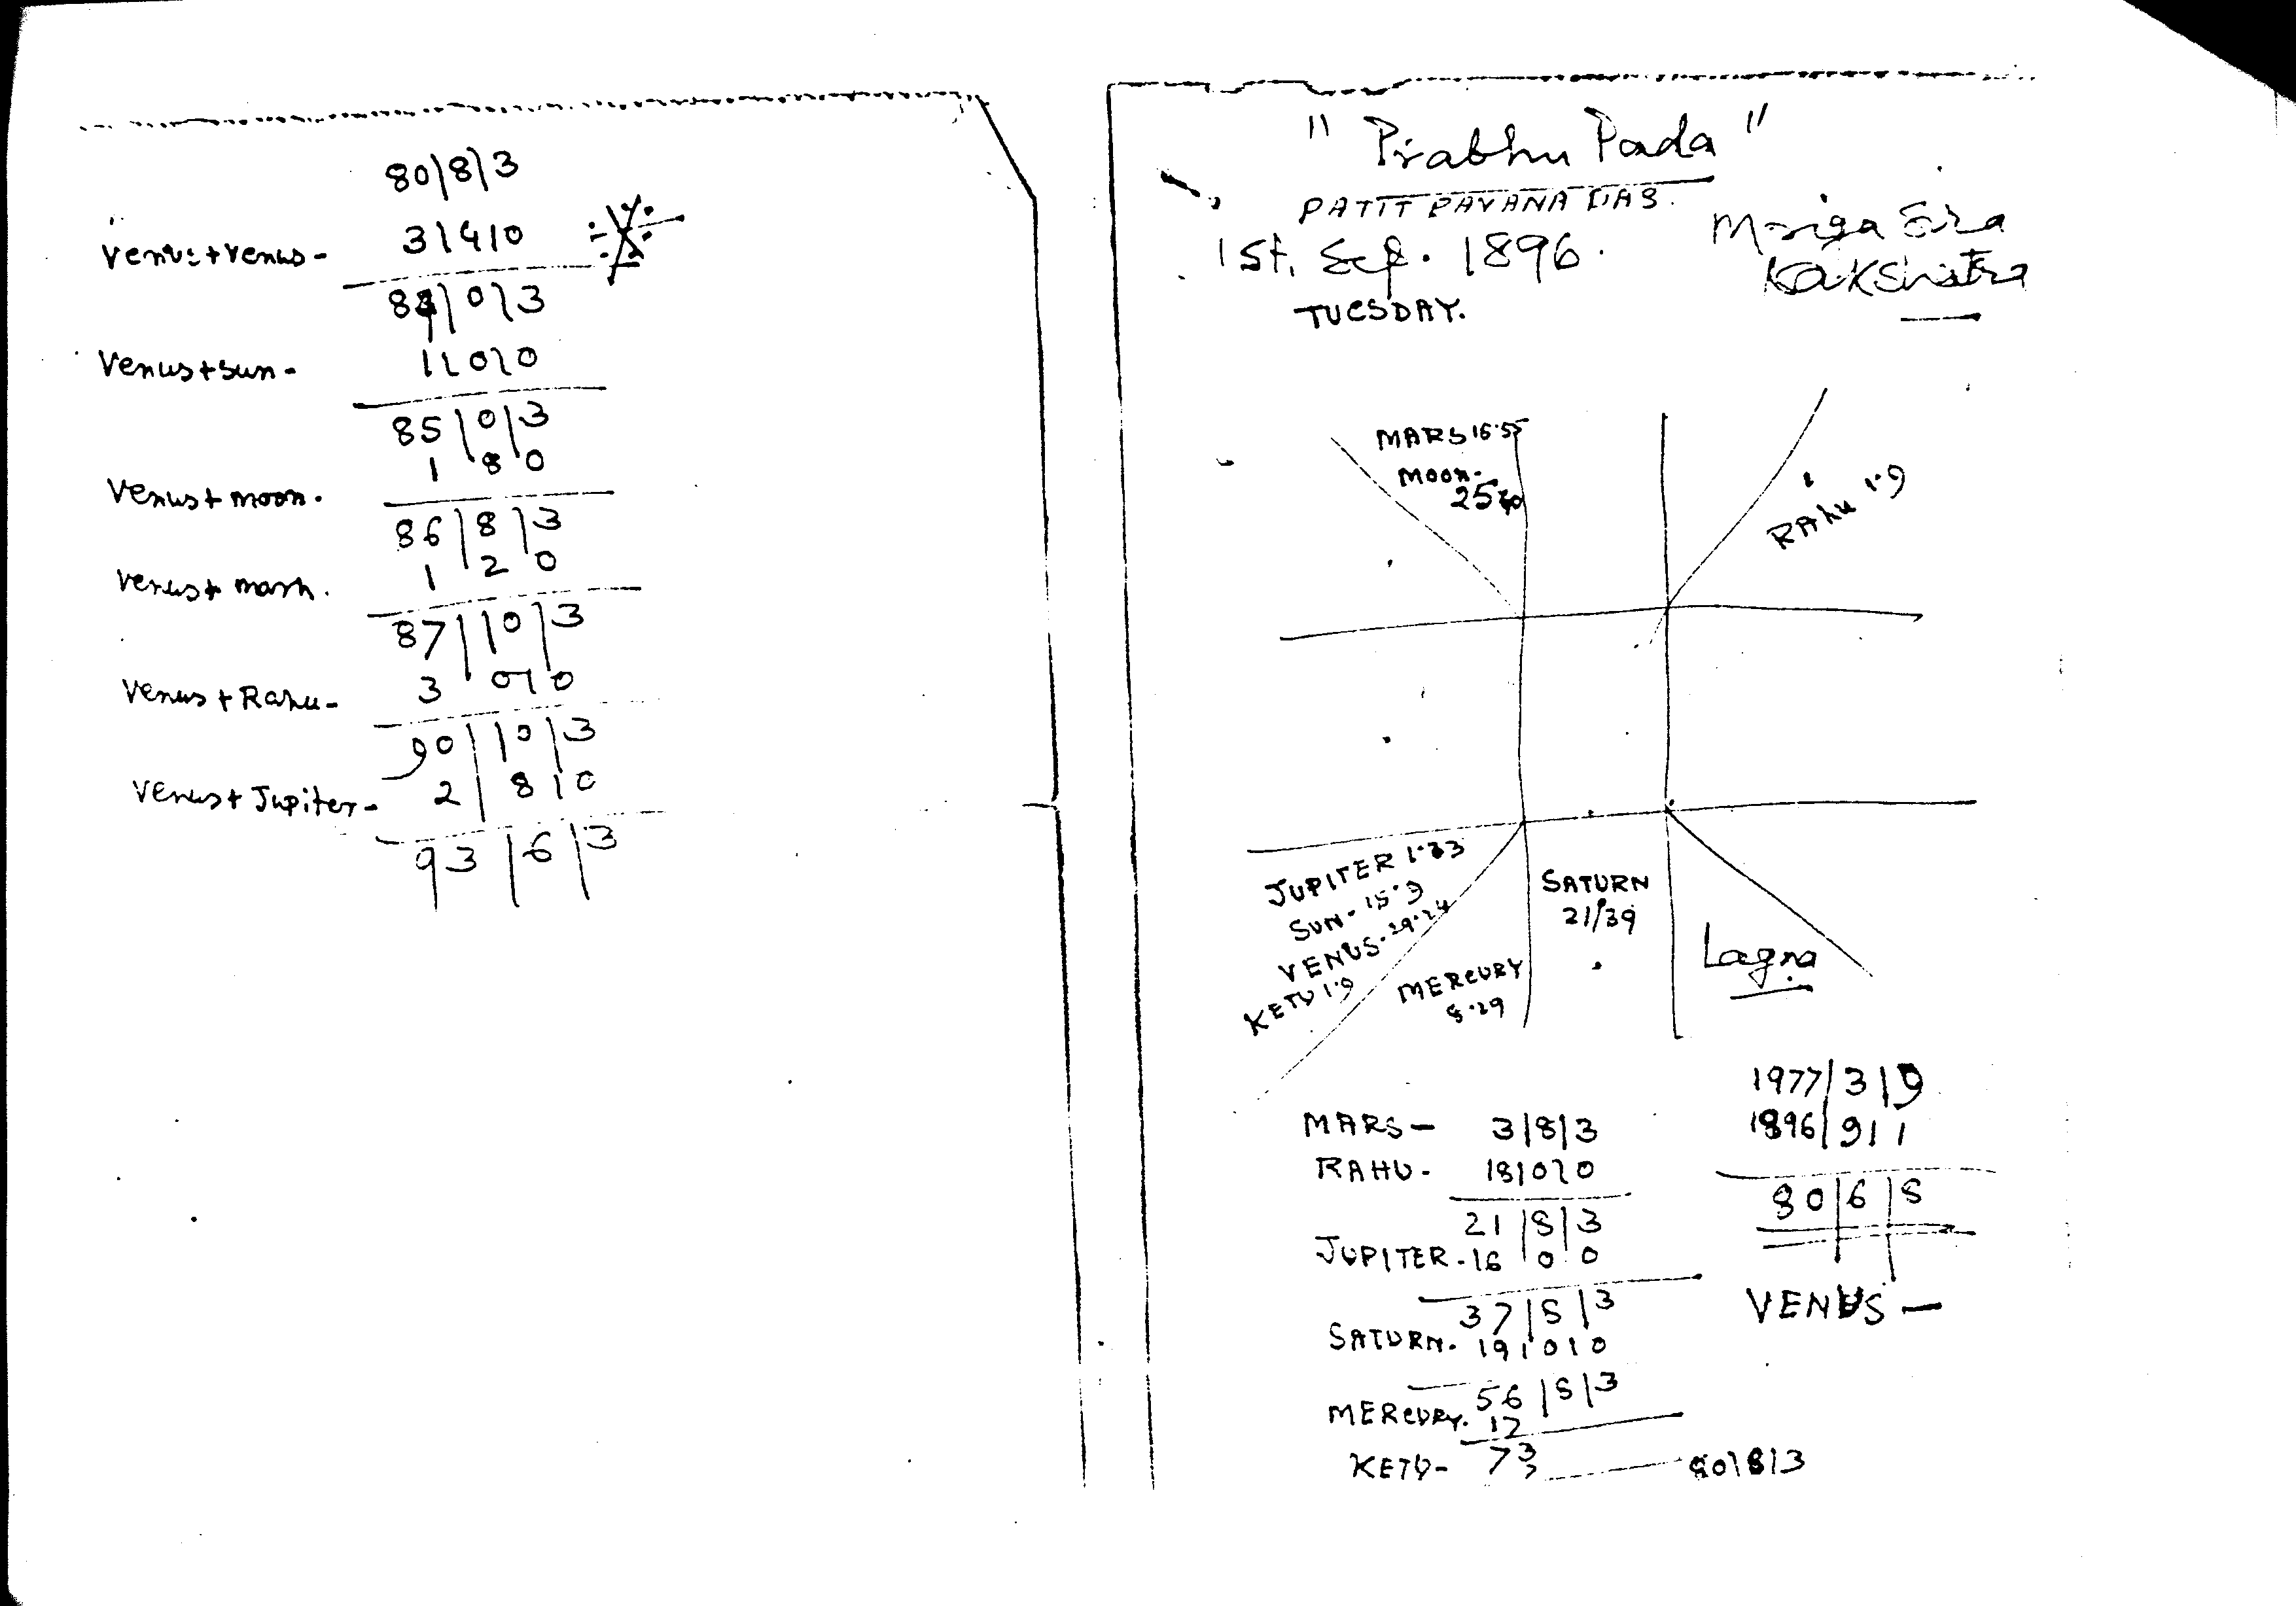 80/8/3
Venus+Venus- 3/4/0
84/0/3
Venus+Sun- 1/0/0
85/0/3
Venus+moon. 1 8 0
86/8/3
Venus+mars. 1 2 0
87/10/3
Venus+Rahu- 3 0/0
90/10/3
Venus+Jupiter- 2/8/0
93/6/3
"Prabhu Pada"
PATIT PAVANA DAS.
1st. Sep. 1896.
TUESDAY.
Mriga Sira
Nakshatra
MARS 15.55
MOON-
25
RAHU 1.9
JUPITER 1.33
SUN- 15.9
VENUS-29.24
KETU 1.9
MERCURY
9.29
SATURN
21/39
Lagna
1977/3/9
1896/9/1
80/6/8
VENUS-
MARS- 3/8/3
RAHU- 18/0/0
21/8/3
JUPITER-16 0 0
37/8/3
SATURN. 19/0/0
56/8/3
MERCURY. 17
KETU- 73 80/8/3